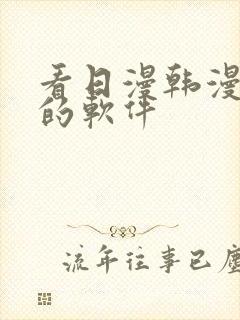 看日漫韩漫
的軟件
流年往事已塵